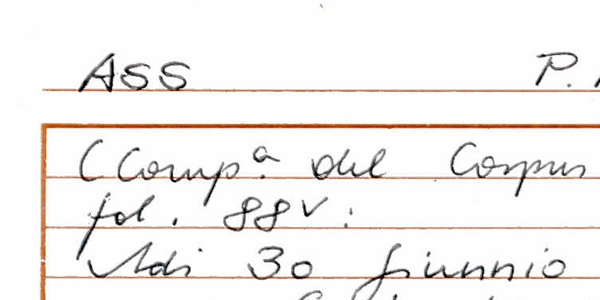 ASS P.
(Comp.ª del Corpus
fol. 88v:
Adi 30 giunnio